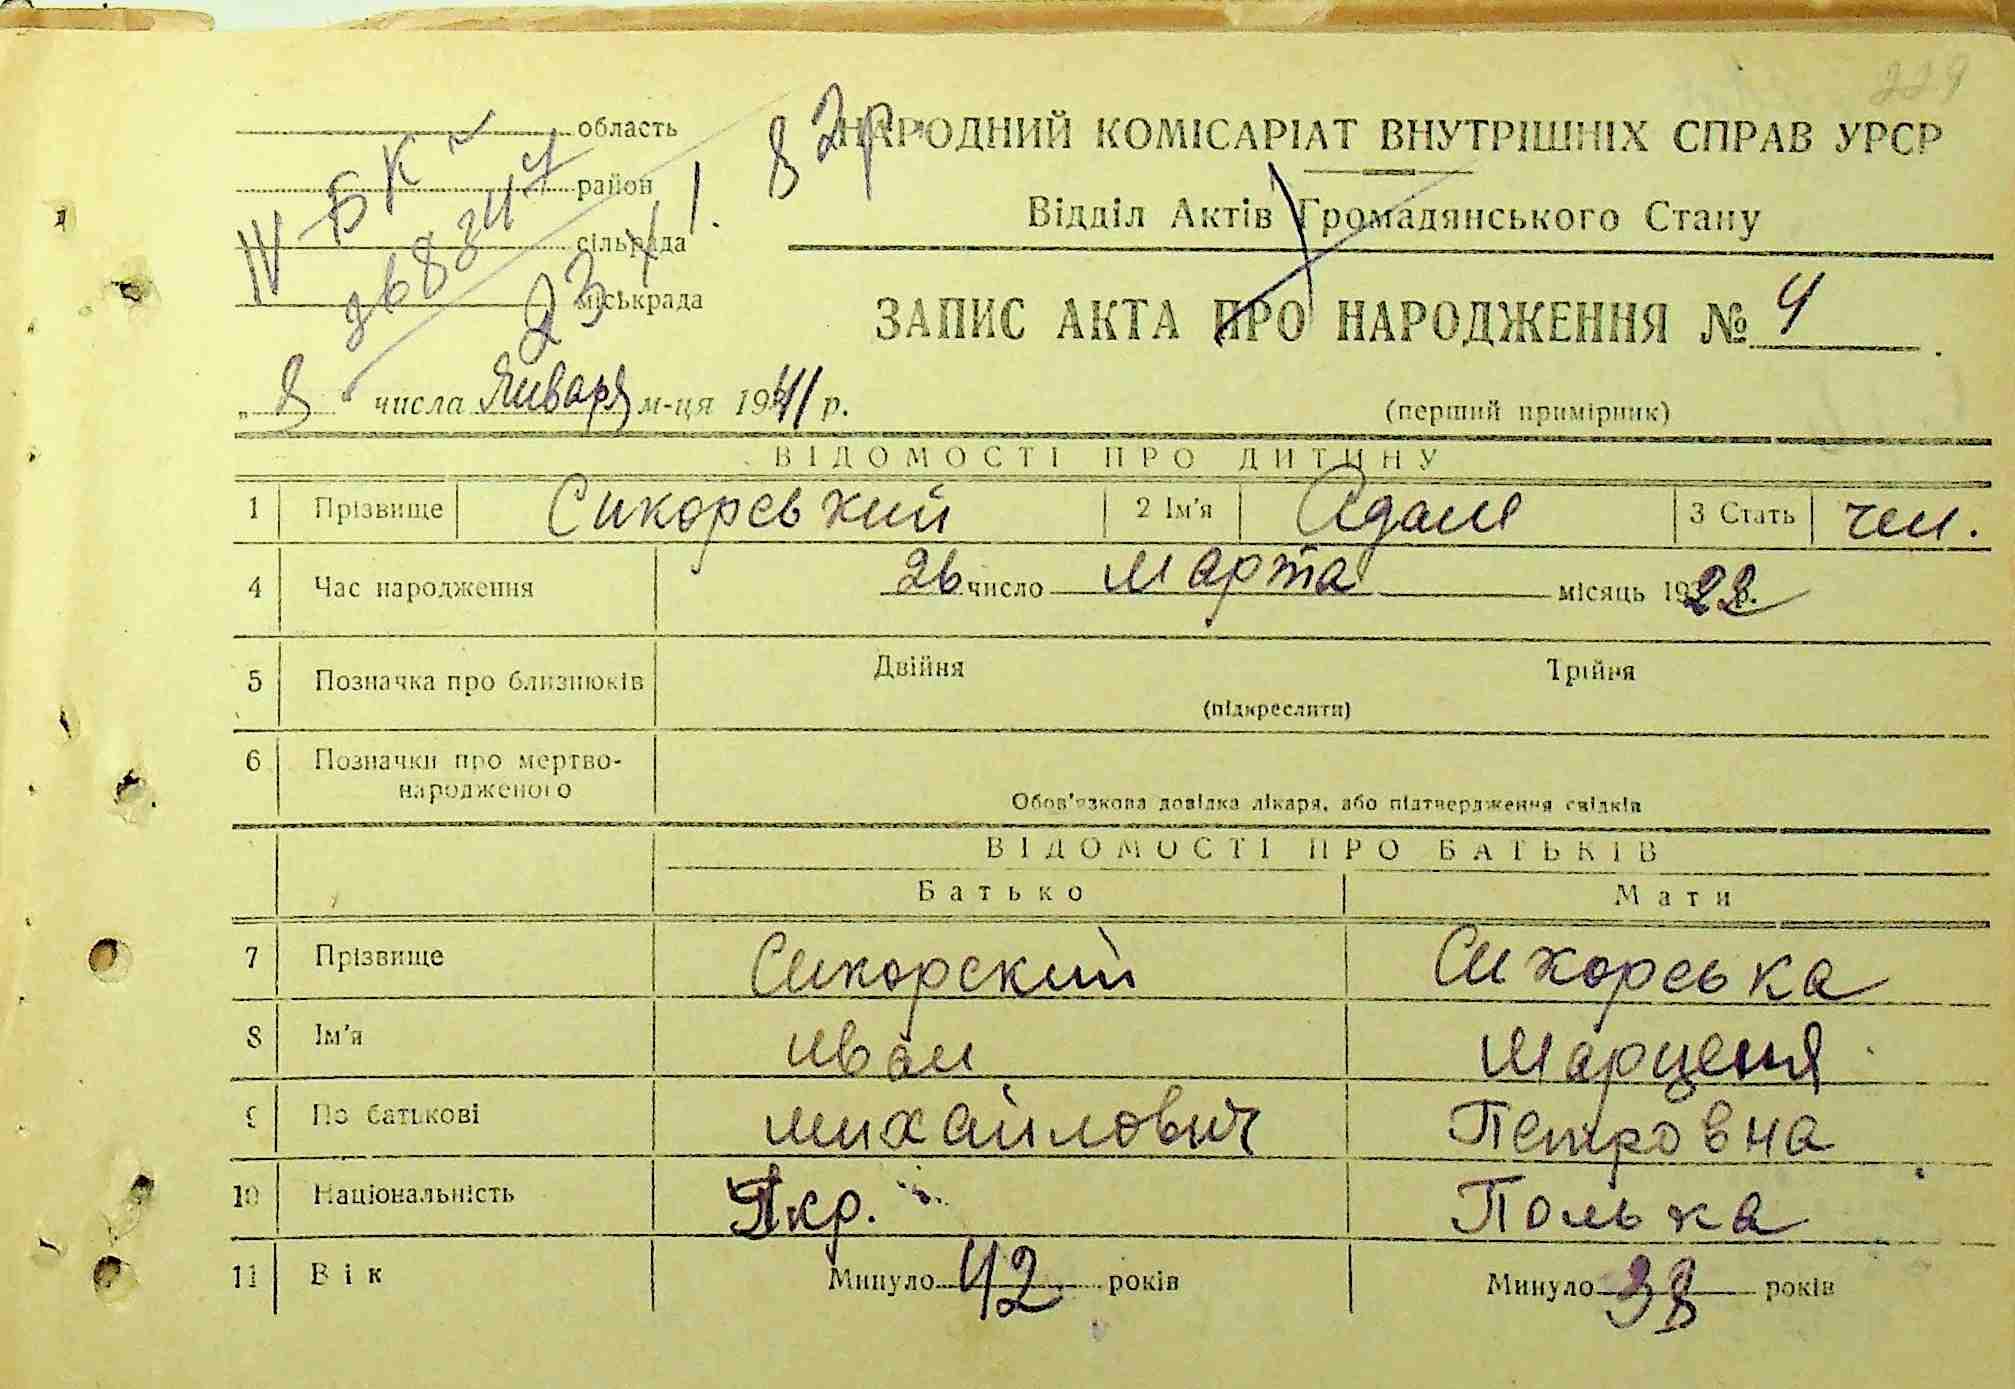 229
область
район
сільрада
міськрада
IV БК
23 XI
НАРОДНИЙ КОМІСАРІАТ ВНУТРІШНІХ СПРАВ УРСР
Відділ Актів Громадянського Стану
ЗАПИС АКТА ПРО НАРОДЖЕННЯ № 4
„ 8 числа Января м-ця 1941 р.
(перший примірник)
ВІДОМОСТІ ПРО ДИТИНУ
1 Прізвище Сикорський 2 Ім'я Адам 3 Стать чол.
4 Час народження 26 число Марта місяць 1922 р.
5 Позначка про близнюків Двійня Трійня
(підкреслити)
6 Позначки про мертво-
народженого
Обов'язкова довідка лікаря, або підтвердження свідків
ВІДОМОСТІ ПРО БАТЬКІВ
Батько Мати
7 Прізвище Сикорский Сикорська
8 Ім'я Иван Марценя
9 По батькові Михайлович Петровна
10 Національність Укр. Полька
11 Вік Минуло 42 років Минуло 38 років